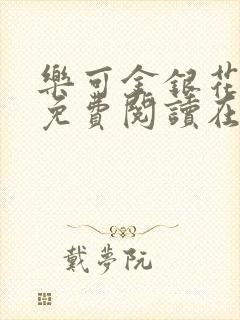 樂可金銀花
免費閱讀在
戴夢阮